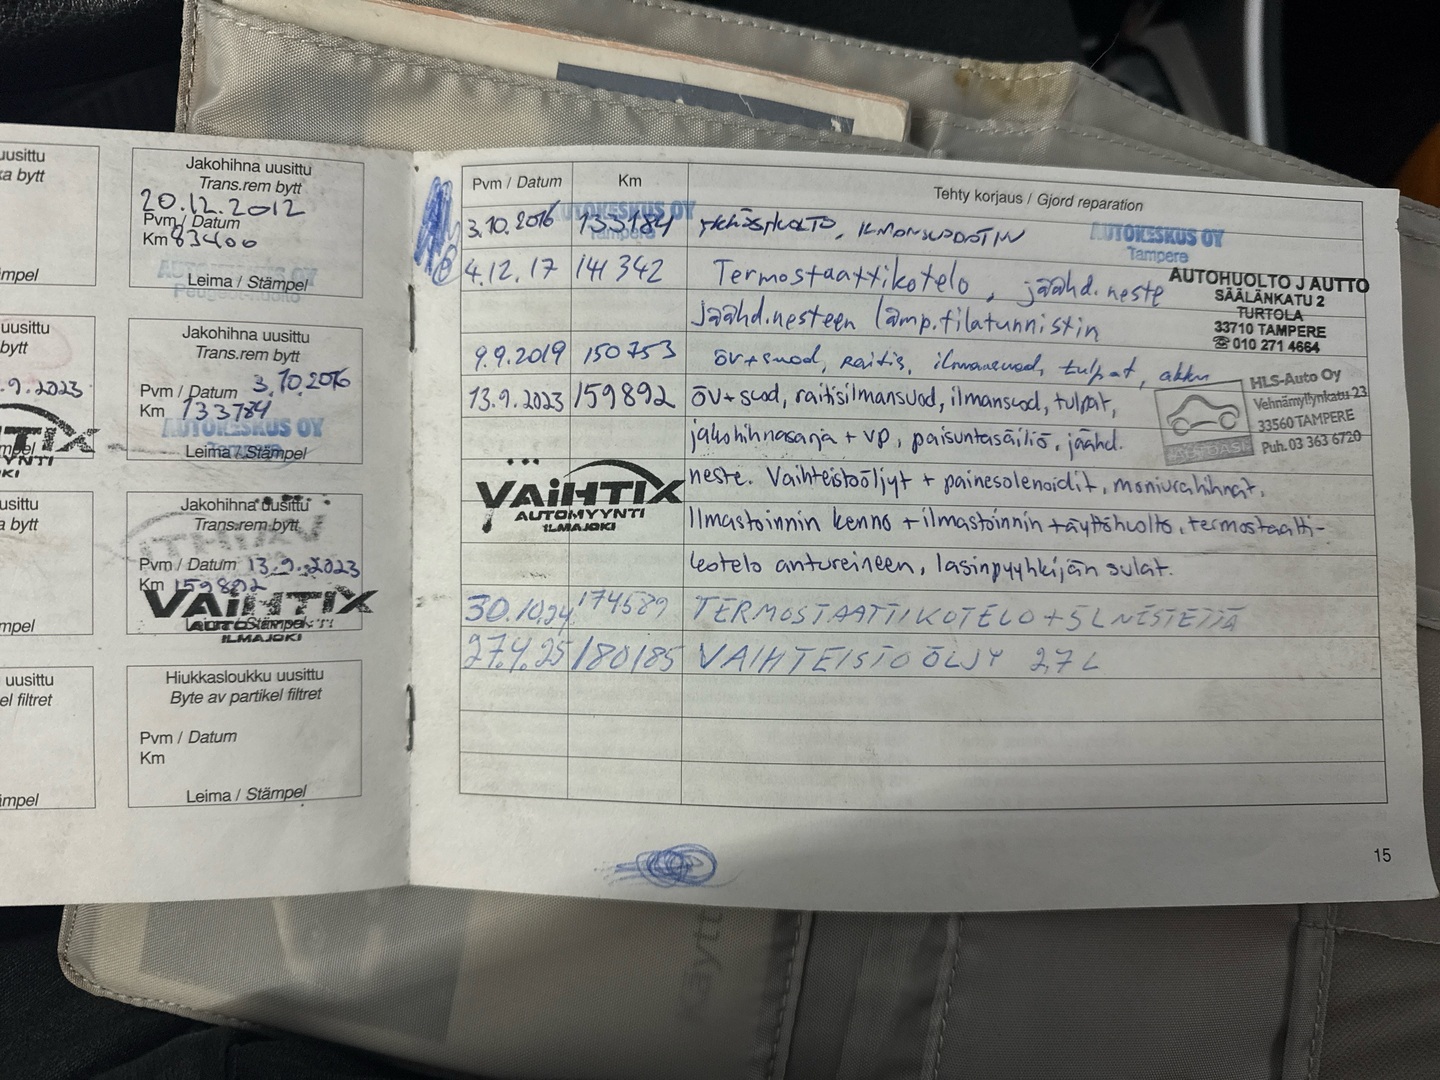 uusittu
a bytt
mpel
uusittu
bytt
.9.2023
mpel
usittu
a bytt
mpel
uusittu
el filtret
mpel
Jakohihna uusittu
Trans.rem bytt
20.12.2012
Pvm / Datum
Km 83400
Peugeot-huolto
Leima / Stämpel
Jakohihna uusittu
Trans.rem bytt
Pvm / Datum 3.10.2016
Km 133784
AUTOKESKUS OY
Leima / Stämpel
Jakohihna uusittu
Trans.rem bytt
Pvm / Datum 13.9.2023
Km 159892
VAIHTIX
AUTOMYYNTI
Leima / Stämpel
ILMAJOKI
Hiukkasloukku uusittu
Byte av partikel filtret
Pvm / Datum
Km
Leima / Stämpel
Pvm / Datum Km Tehty korjaus / Gjord reparation
AUTOKESKUS OY
Tampere
3.10.2016 133184 , ILMANSUODATIN
AUTOKESKUS OY
Tampere
4.12.17 141 342 Termostaattikotelo, jäähd.neste
Jäähd.nesteen lämp.tilatunnistin
AUTOHUOLTO J AUTTO
SÄÄLÄNKATU 2
TURTOLA
33710 TAMPERE
☎ 010 271 4664
9.9.2019 150753 öv+suod, raitis, ilmansuod, tulpat, akku
HLS-Auto Oy
Vehnämyllynkatu 23
33560 TAMPERE
Puh. 03 363 6720
AUTOASI
13.9.2023 159892 öv+suod, raitisilmansuod, ilmansuod, tulpat,
jakohihnasarja + vp, paisuntasäiliö, jäähd.
neste. Vaihteistoöljyt + painesolenoidit, moniurahihnat,
VAIHTIX
AUTOMYYNTI
ILMAJOKI
Ilmastoinnin kenno + ilmastoinnin täyttöhuolto, termostaatti-
kotelo antureineen, lasinpyyhkijän sulat.
30.10.24 174589 TERMOSTAATTIKOTELO + 5L NESTETTÄ
27.4.25 180185 VAIHTEISTOÖLJY 2,7 L
15
Käytt